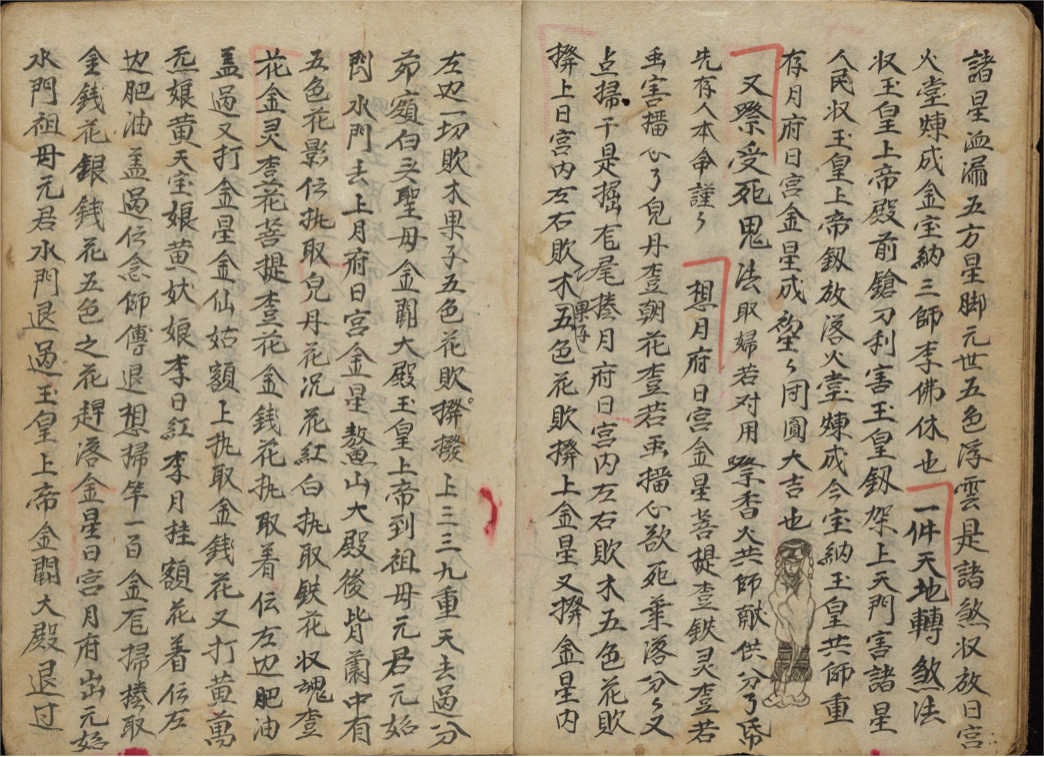 諸星血漏五方星脚元世五色浮雲是諸煞収放日宮
火堂煉成金宝納三師李佛休也 一件天地轉煞法
収玉皇上帝殿前鎗刀利害玉皇釼架上天門害諸星
人民収玉皇上帝釼放落火堂煉成今宝納玉皇共師重
存月府日宮金星成 〻团圓大吉也
又 受死鬼法取婦若对用 香火共師献供分了昏
先存人本命謹〻 想月府日宮金星菩提查鉄灵查若
害擂心了皃丹查朝花查若 擂心欲死葉落分〻又
点掃干是掘 尾 月府日宮内左右欺木五色花欺
上日宮内左右欺木五色花欺 上金星又 金星内
左边一切欺木果子五色花欺 撥上三三九重天去過分
額白头聖母金闕大殿玉皇上帝到祖母元君元始
水門去上月府日宮金星鰲山大殿後皆蘭中有
五色花影伝执取皃丹花况花紅白执取鉄花収魂查
花金灵查花菩提查花金銭花执取着伝左边肥油
盖過又打金星金仙姑額上执取金銭花又打黄萬
炁娘黄天宝娘黄状娘李日紅李月挂額花着伝左
边肥油盖過伝念師傳退想掃竿一百金 掃 取
金銭花銀銭花五色之花趕落金星日宮月府出元始
水門祖母元君水門退過玉皇上帝金闕大殿退过